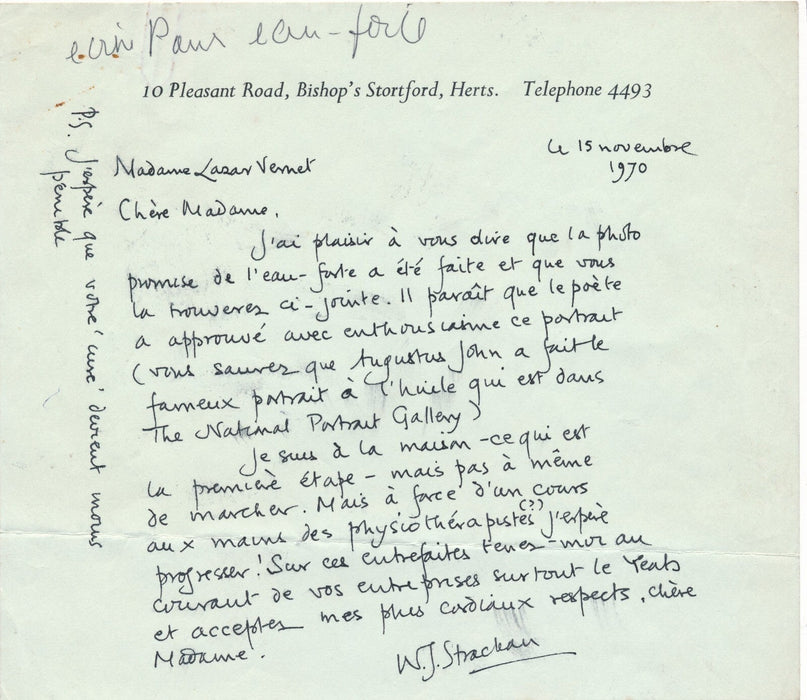 écrire Pour eau-forte
10 Pleasant Road, Bishop's Stortford, Herts. Telephone 4493
le 15 novembre
1970
Madame Lazar Vernet
Chère Madame,
J'ai plaisir à vous dire que la photo
promise de l'eau-forte a été faite et que vous
la trouverez ci-jointe. Il paraît que le poète
a approuvé avec enthousiasme ce portrait
(vous saurez que Augustus John a fait le
fameux portrait à l'huile qui est dans
The National Portrait Gallery)
Je suis à la maison - ce qui est
la première étape - mais pas à même
de marcher. Mais à force d'un cours
aux mains des physiothérapistes (?) j'espère
progresser! Sur ces entrefaites tenez-moi au
courant de vos entreprises surtout le Yeats
et acceptez mes plus cordiaux respects, chère
Madame.
W.J. Strachan
P.S. J'espère que votre 'cure' devient moins
pénible